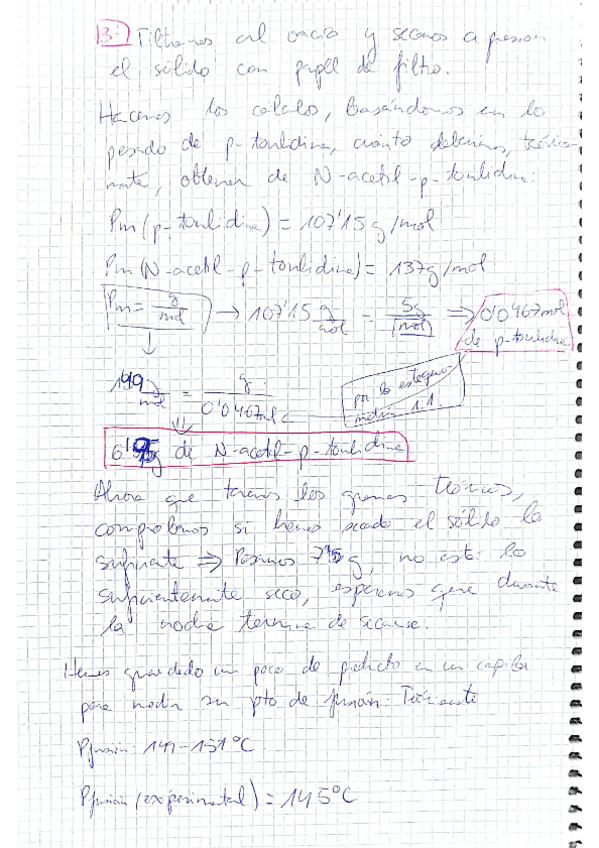 3- Filtramos al vacío y secamos a presión
el sólido con papel de filtro.
Hacemos los cálculos, basándonos en lo
pesado de p-touludina, cuánto deberíamos, teórica-
mente, obtener de N-acetil-p-touludina:
Pm (p-touludina) = 107'15 g/mol
Pm (N-acetil-p-touludina) = 137g/mol
Pm = g/mol → 107'15 g/mol = 5g/mol ⇒ 0'0467 mol
de p-touludina
149 g/mol = g/0'0467mol
por la estequio-
metría 1:1.
6'95g de N-acetil-p-touludina
Ahora que tenemos los gramos teóricos,
comprobamos si hemos secado el sólido lo
suficiente ⇒ Pesamos 7'5g, no está lo
suficientemente seco, esperamos que durante
la noche termine de secarse.
Hemos guardado un poco de producto en un capilar
para medir su pto de fusión. Teóricamente
Pfusión: 149-151°C
Pfusión (experimental) = 145°C